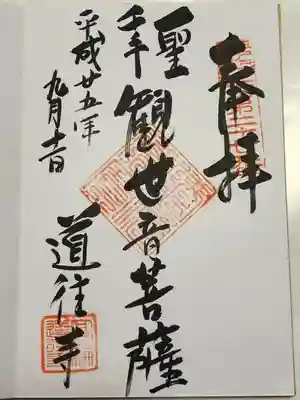 奉拝
聖観世音菩薩
千手
平成廿五年
九月十一日
道往寺